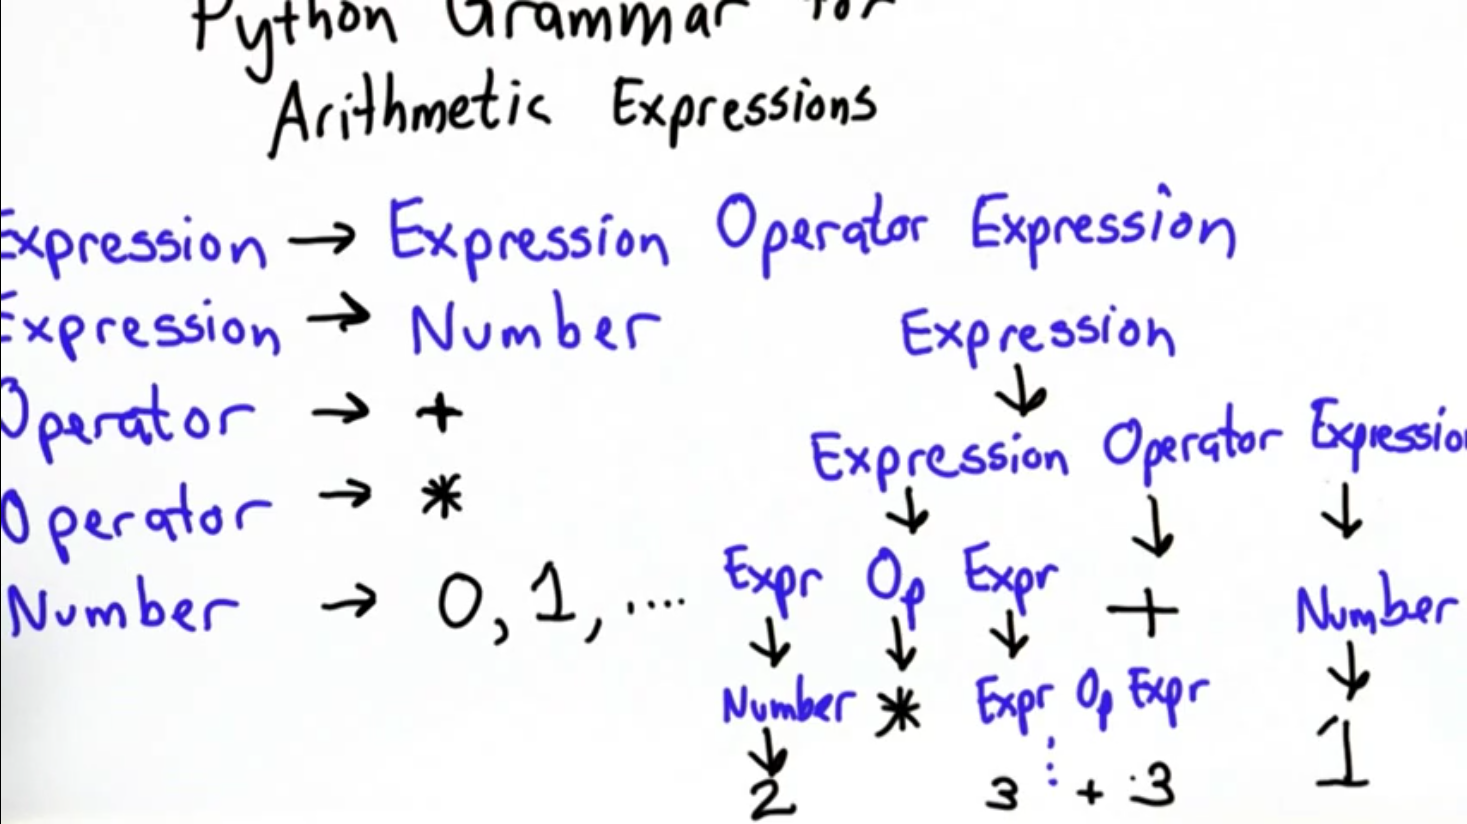 Python Grammar for
Arithmetic Expressions
Expression → Expression Operator Expression
Expression → Number
Operator → +
Operator → *
Number → 0, 1, ....
Expression
↓
Expression Operator Expression
↓ ↓ ↓
Expr Op Expr + Number
↓ ↓ ↓ ↓
Number * Expr Op Expr 1
↓ ⋮
2 3 + 3